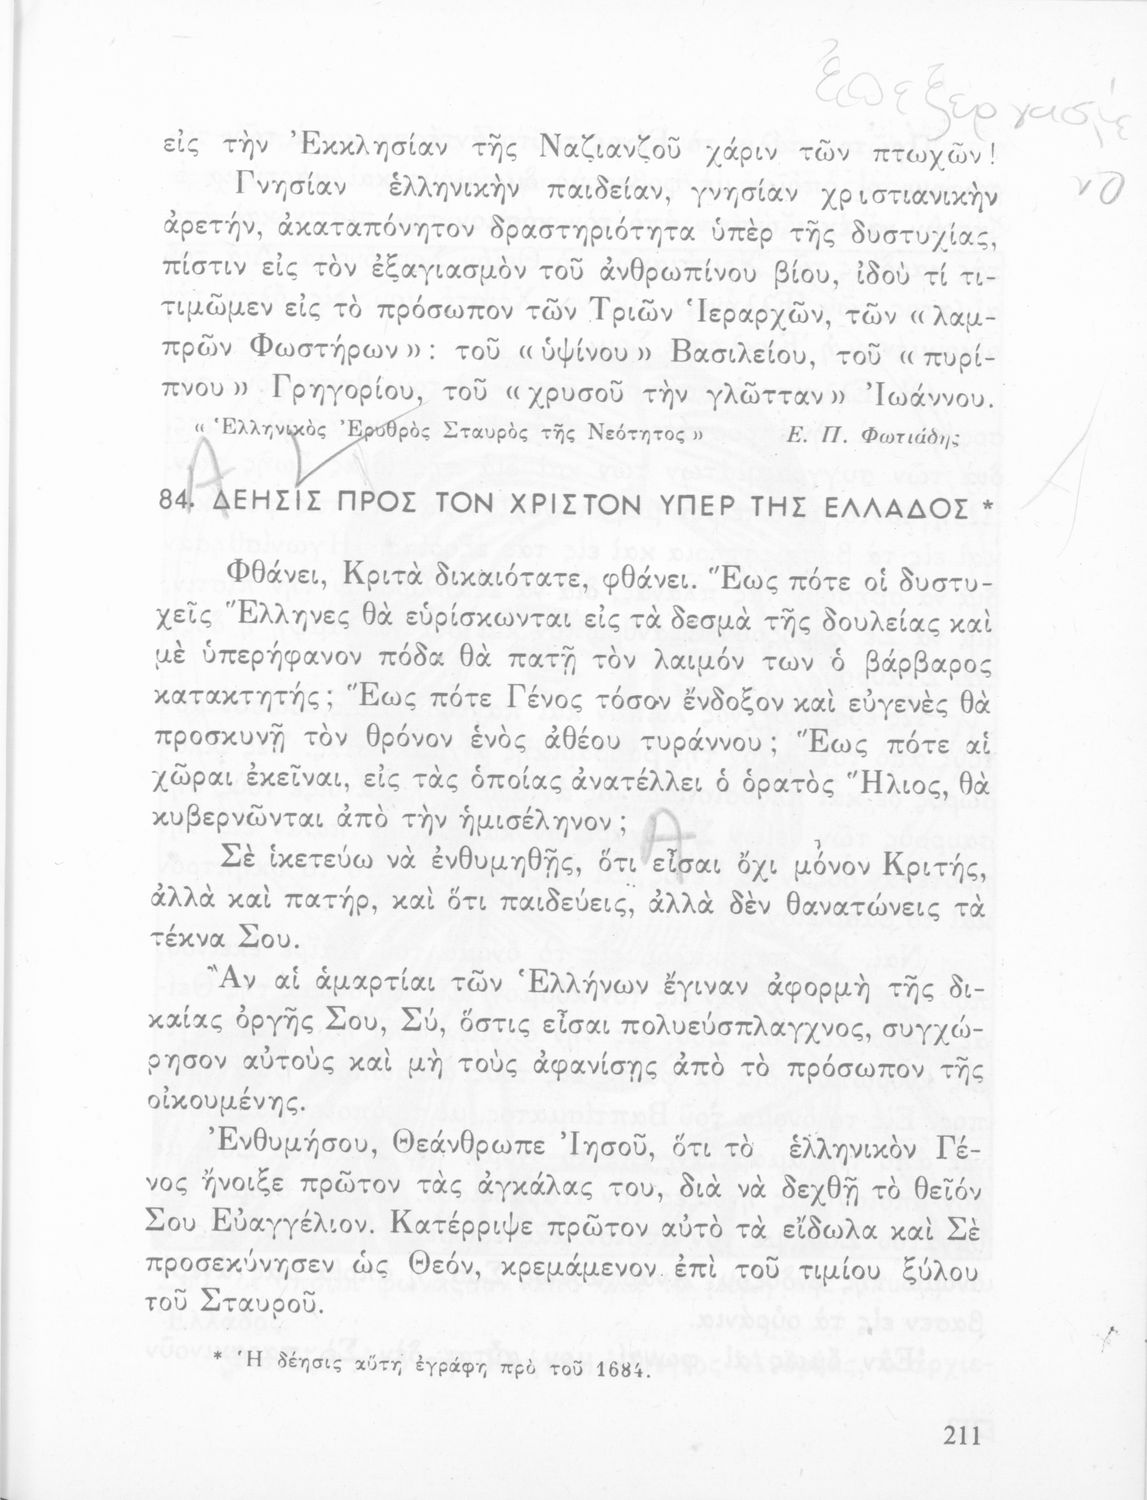 ἐπεξεργασία
εἰς τὴν Ἐκκλησίαν τῆς Ναζιανζοῦ χάριν τῶν πτωχῶν!
Γνησίαν ἑλληνικὴν παιδείαν, γνησίαν χριστιανικὴν
ἀρετήν, ἀκαταπόνητον δραστηριότητα ὑπὲρ τῆς δυστυχίας,
πίστιν εἰς τὸν ἐξαγιασμὸν τοῦ ἀνθρωπίνου βίου, ἰδοὺ τί τι-
τιμῶμεν εἰς τὸ πρόσωπον τῶν Τριῶν Ἱεραρχῶν, τῶν «λαμ-
πρῶν Φωστήρων»: τοῦ «ὑψίνου» Βασιλείου, τοῦ «πυρί-
πνου» Γρηγορίου, τοῦ «χρυσοῦ τὴν γλῶτταν» Ἰωάννου.
«Ἑλληνικὸς Ἐρυθρὸς Σταυρὸς τῆς Νεότητος» Ε. Π. Φωτιάδης
84. ΔΕΗΣΙΣ ΠΡΟΣ ΤΟΝ ΧΡΙΣΤΟΝ ΥΠΕΡ ΤΗΣ ΕΛΛΑΔΟΣ *
Φθάνει, Κριτὰ δικαιότατε, φθάνει. Ἕως πότε οἱ δυστυ-
χεῖς Ἕλληνες θὰ εὑρίσκωνται εἰς τὰ δεσμὰ τῆς δουλείας καὶ
μὲ ὑπερήφανον πόδα θὰ πατῇ τὸν λαιμόν των ὁ βάρβαρος
κατακτητής; Ἕως πότε Γένος τόσον ἔνδοξον καὶ εὐγενὲς θὰ
προσκυνῇ τὸν θρόνον ἑνὸς ἀθέου τυράννου; Ἕως πότε αἱ
χῶραι ἐκεῖναι, εἰς τὰς ὁποίας ἀνατέλλει ὁ ὁρατὸς Ἥλιος, θὰ
κυβερνῶνται ἀπὸ τὴν ἡμισέληνον;
Σὲ ἱκετεύω νὰ ἐνθυμηθῇς, ὅτι εἶσαι ὄχι μόνον Κριτής,
ἀλλὰ καὶ πατήρ, καὶ ὅτι παιδεύεις, ἀλλὰ δὲν θανατώνεις τὰ
τέκνα Σου.
Ἂν αἱ ἁμαρτίαι τῶν Ἑλλήνων ἔγιναν ἀφορμὴ τῆς δι-
καίας ὀργῆς Σου, Σύ, ὅστις εἶσαι πολυεύσπλαγχνος, συγχώ-
ρησον αὐτοὺς καὶ μὴ τοὺς ἀφανίσῃς ἀπὸ τὸ πρόσωπον τῆς
οἰκουμένης.
Ἐνθυμήσου, Θεάνθρωπε Ἰησοῦ, ὅτι τὸ ἑλληνικὸν Γέ-
νος ἤνοιξε πρῶτον τὰς ἀγκάλας του, διὰ νὰ δεχθῇ τὸ θεῖόν
Σου Εὐαγγέλιον. Κατέρριψε πρῶτον αὐτὸ τὰ εἴδωλα καὶ Σὲ
προσεκύνησεν ὡς Θεόν, κρεμάμενον ἐπὶ τοῦ τιμίου ξύλου
τοῦ Σταυροῦ.
* Ἡ δέησις αὕτη ἐγράφη πρὸ τοῦ 1684.
211